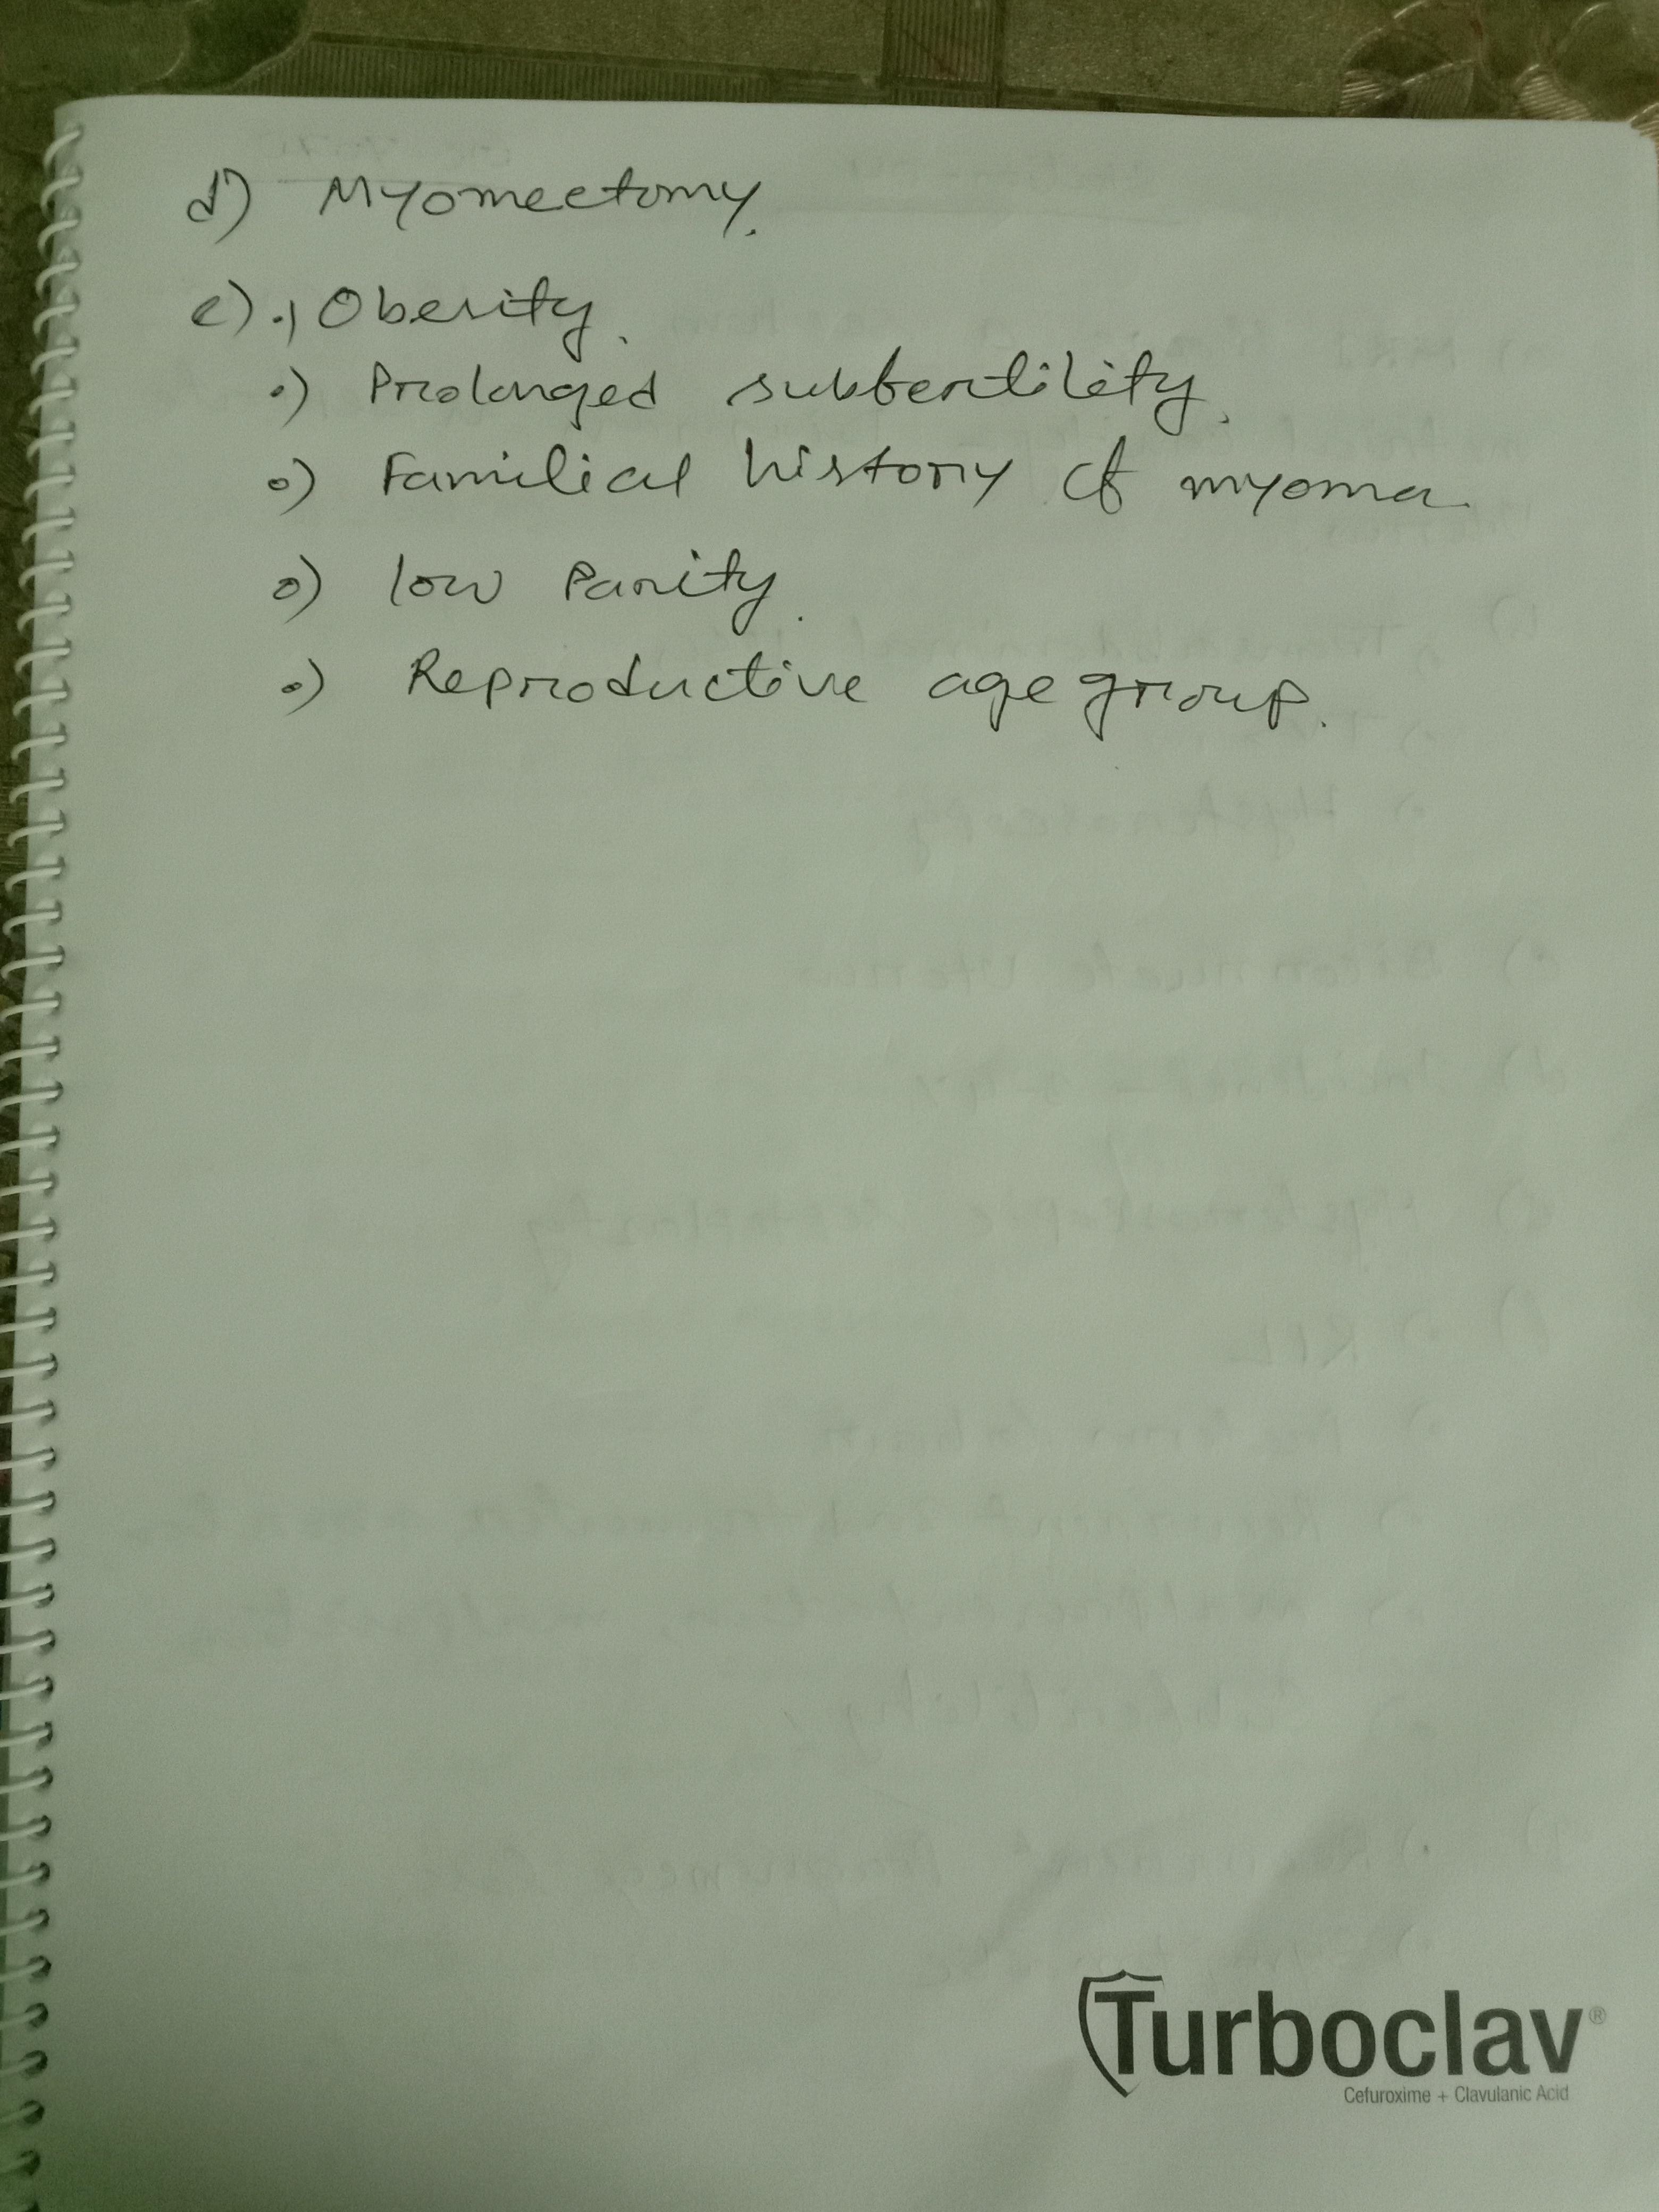 d) Myomectomy.
e) •) Obesity.
•) Prolonged subfertility.
•) Familial history of myoma.
•) low Parity.
•) Reproductive age group.
Turboclav®
Cefuroxime + Clavulanic Acid